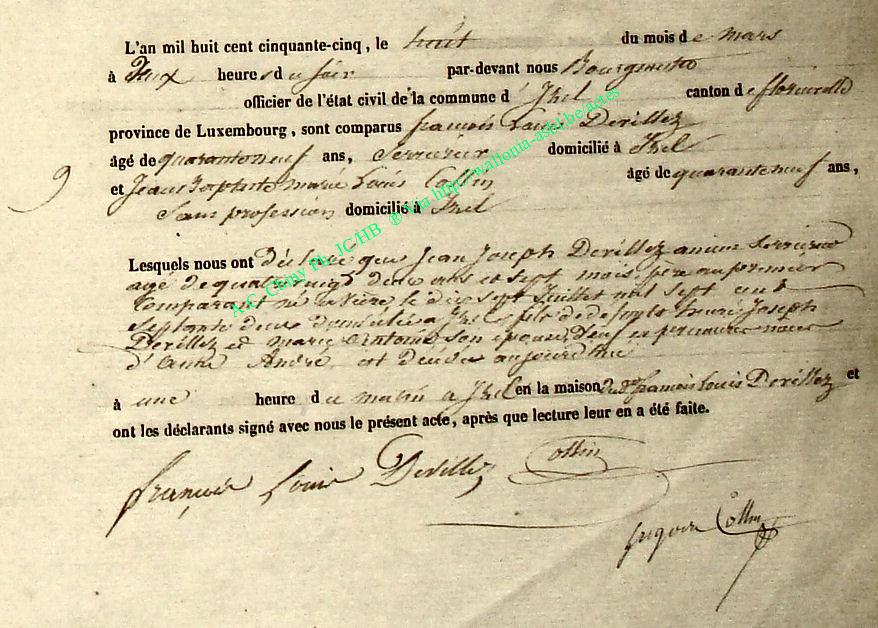 L'an mil huit cent cinquante-cinq, le huit du mois de mars
à Deux heures du soir par-devant nous Bourgmestre
officier de l'état civil de la commune d'Izel canton de florenville
province de Luxembourg, sont comparus françois Louis Devillez
âgé de quaranteneuf ans, Serrurier domicilié à Izel
9 et Jean Baptiste marie Louis Collin âgé de quaranteneuf ans,
Sans profession domicilié à Izel
Lesquels nous ont déclaré que Jean Joseph Devillez ancien Serrurier
agé de quatrevingt deux ans et sept mois, père au premier
Comparant né le dix sept Juillet mil sept cent
Septante deux domicilié à Izel fils de defunts Joseph
Devillez et marie son épouse, veuf en premières noces
d'Anne André, est décédé aujourd'hui
à une heure du matin à Izel en la maison dudt françois Louis Devillez et
ont les déclarants signé avec nous le présent acte, après que lecture leur en a été faite.
françois Louis Devillez Collin
Collin
A.C. Chiny Ph. JC HB ® via http://wallonia-asbl.be/actes